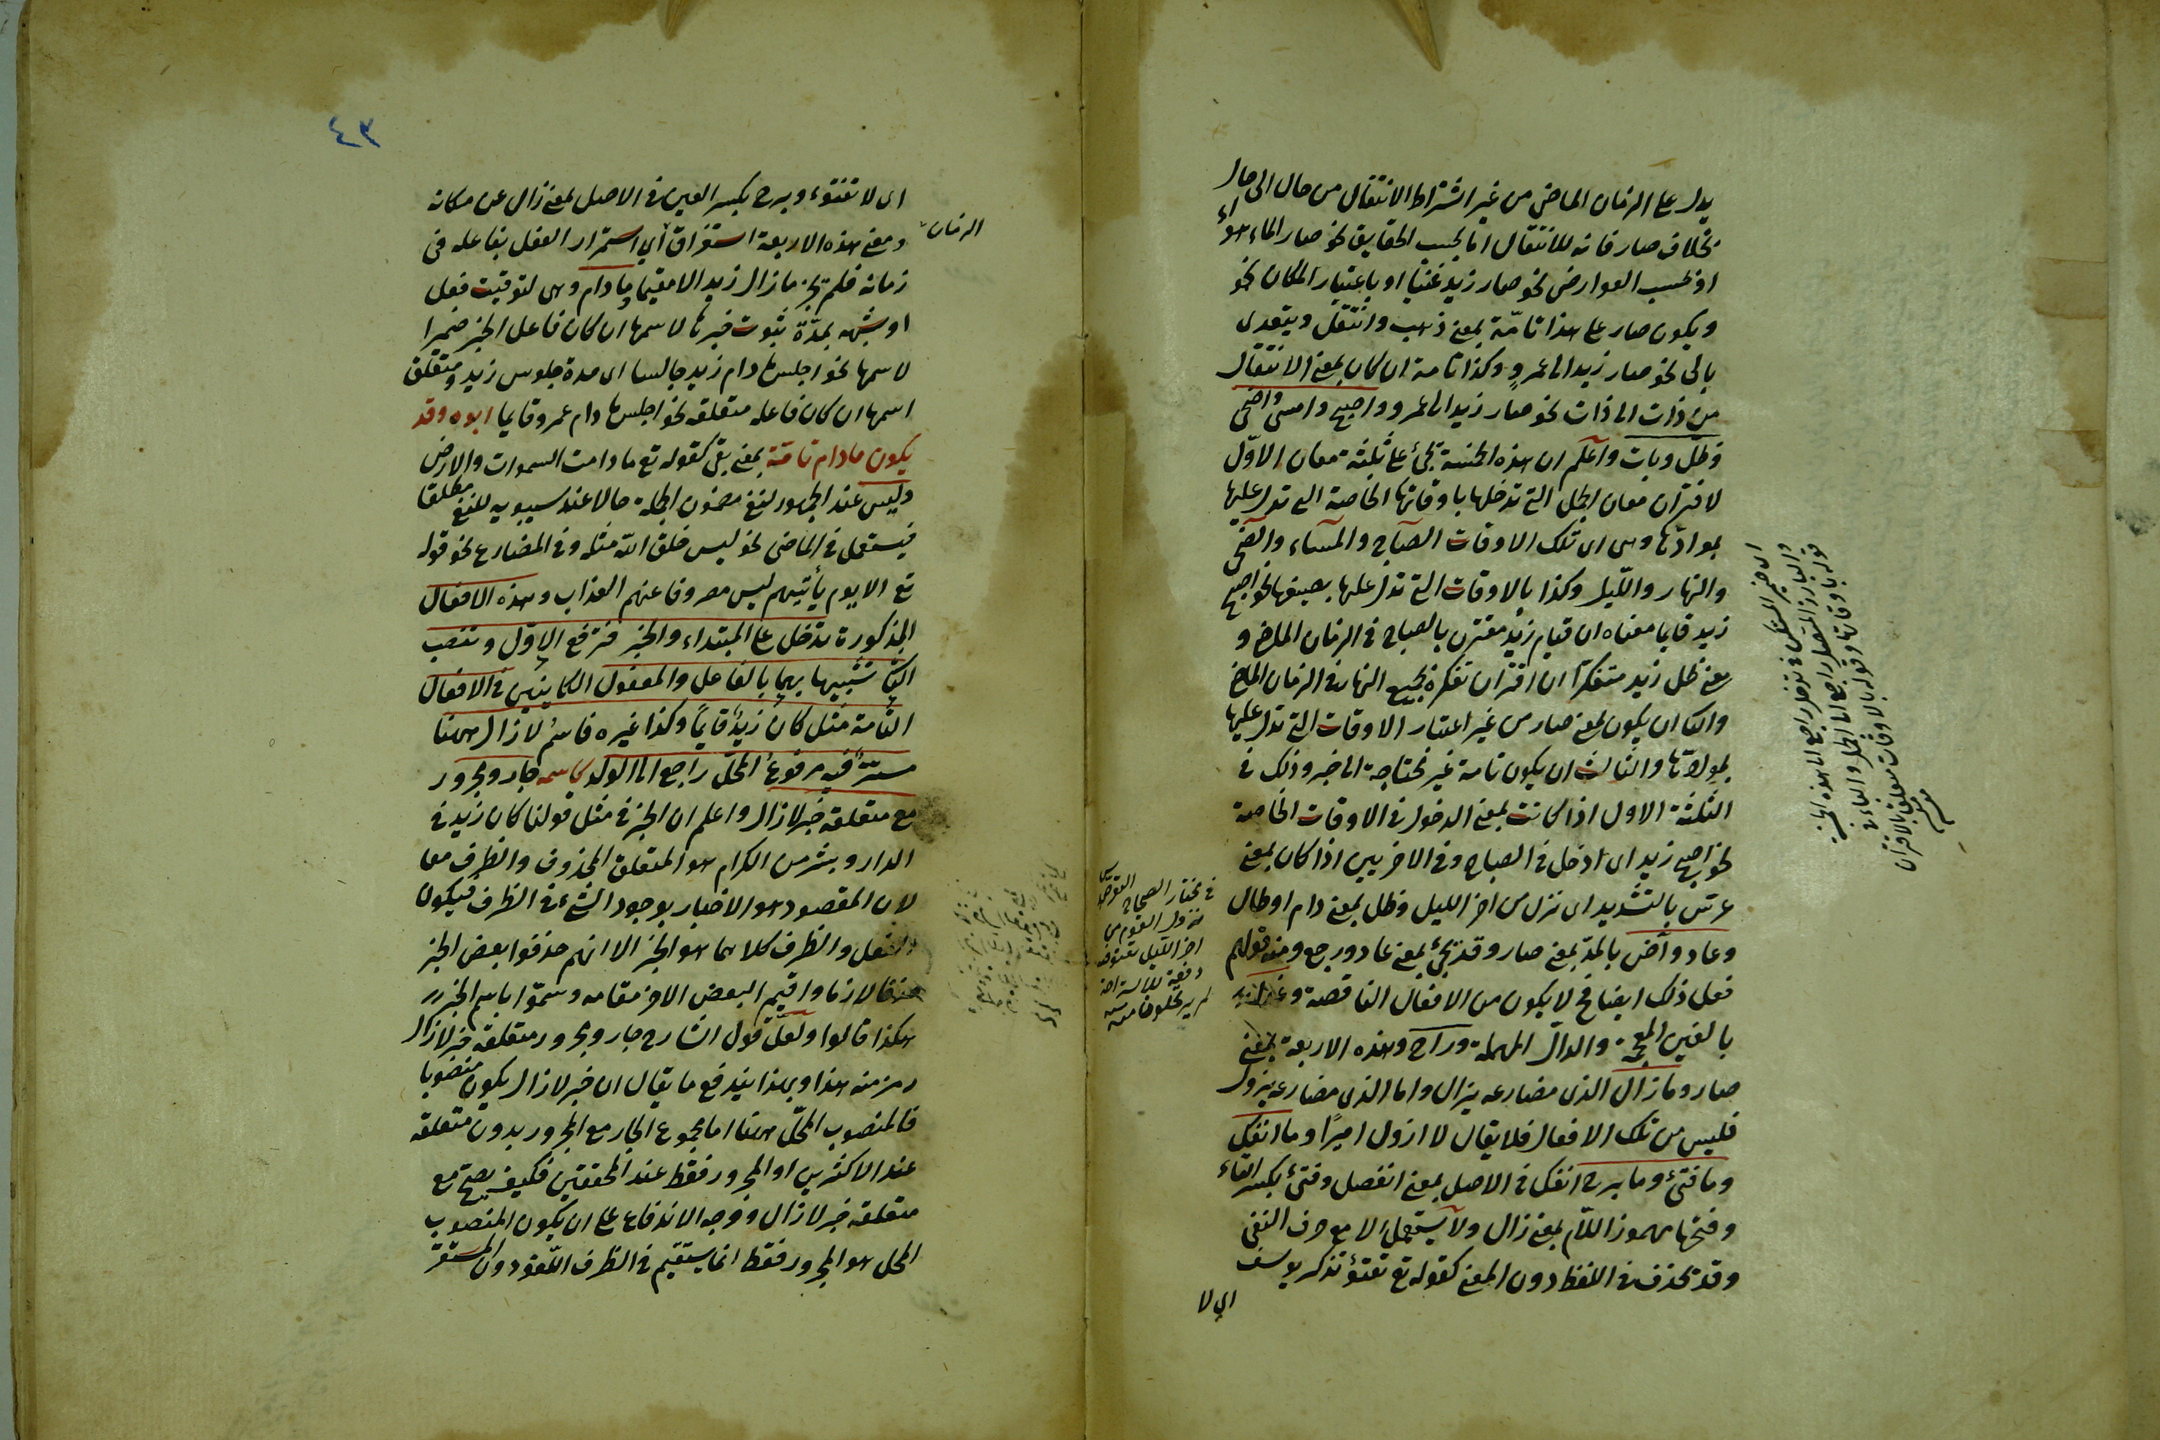 يدل على الزمان الماضى من غير اشتراط الانتقال من حال الى حال
بخلاف صار فانه للانتقال اما بحسب الحقايق نحو صار الماء هواء
او بحسب العوارض نحو صار زيد غنيا او باعتبار المكان نحو
ويكون صار على هذا تامّة بمعنى ذهب وانتقل ويتعدى
بالى نحو صار زيد الى عمرو وكذا تامة ان كان بمعنى الانتقال
من ذات الى ذات نحو صار زيد الى عمرو واصبح وامسى واضحى
وظلّ وبات واعلم ان هذه الخمسة تجئ على ثلثة معان الاوّل
لاقتران معان الجمل التى تدخلها باوقاتها الخاصة التى تدل عليها
بموادّها وهى اى تلك الاوقات الصباح والمساء والضحى
والنهار والليل وكذا بالاوقات التى تدل عليها بصيغها نحو اصبح
زيد قايما معناه ان قيام زيد مقترن بالصباح فى الزمان الماضى و
معنى ظل زيد متفكرًا ان اقتران تفكره بجميع النهار فى الزمان الماضى
والثانى ان يكون بمعنى صار من غير اعتبار الاوقات التى تدل عليها
والثالث ان يكون تامة غير محتاجة الى خبر وذلك فى
الثلثة الاول اذا كانت بمعنى الدخول فى الاوقات الخاصة
نحو اصبح زيد اى ادخل فى الصباح وفى الاخريين اذا كان بمعنى
عرّس بالتشديد اى نزل من اخر الليل وظل بمعنى دام او طال
وعاد وآض بالمدّ بمعنى صار وقد تجئ بمعنى عاد ورجع ومنه قولهم
فعل ذلك ايضا فح لا يكون من الافعال الناقصة وغدا
بالغين المعجمة والدال المهملة وراح وهذه الاربعة بمعنى
صار وما زال الذى مضارعه يزال واما الذى مضارعه يزول
فليس من تلك الافعال فلا يقال لا ازول اميرًا وما انفكّ
وما فتئ وما برح انفك فى الاصل بمعنى انفصل وفتئ بكسر التاء
وفتحها مهموز اللام بمعنى زال ولا يستعمل الا مع حرف النفى
وقد تحذف فى اللفظ دون المعنى كقوله تع تفتؤ تذكر يوسف
اى لا
اى ضمير المستكن فى تدخل راجع الى هذه
والبارز المتصل راجع الى الجمل والباء فى
قوله باوقاتها وقوله بالاوقات متعلق بالاقتران
فى مختار الصحاح التعريس
نزول القوم من
اخر الليل
وقعة للاستراحة
ثم يرتحلون
٤٣
اى لا تفتؤ وبرح بكسر العين فى الاصل بمعنى زال عن مكانه
ومعنى هذه الاربعة استغراق اى استمرار الفعل بفاعله فى
الزمان
زمانه فلم يجز ما زال زيد الا مقيما وما دام وهى لتوقيت فعل
او شبهه بمدّة ثبوت خبرها لاسمها ان كان فاعل الخبر ضميرا
لاسمها نحو اجلس ما دام زيد جالسا اى مدة جلوس زيد ومتعلق
اسمها ان كان فاعله متعلقه نحو اجلس ما دام عمرو قايما ابوه وقد
يكون ما دام تامّة بمعنى بقى كقوله تع ما دامت السموات والارض
وليس عند الجمهور لنفى مضمون الجملة حالا عند سيبويه للنفى مطلقا
فيستعمل فى الماضى نحو ليس خلق الله مثله وفى المضارع نحو قوله
تع الا يوم يأتيهم ليس مصروفا عنهم العذاب وهذه الافعال
المذكورة تدخل على المبتداء والخبر فترفع الاوّل وتنصب
الثانى تشبيها بهما بالفاعل والمفعول الكاينين فى الافعال
التامة مثل كان زيدٌ قايماً وكذا غيره فاسم لا زال ههنا
مستترٌ فيه مرفوع المحلّ راجع الى الولد كاسمه جار ومجرور
مع متعلقه خبر لا زال واعلم ان الخبر فى مثل قولنا كان زيد فى
الدار وبشر من الكرام هو المتعلق المحذوف والظرف معا
لان المقصود هو الاخبار بوجود الشئ فى الظرف فيكون
الفعل والظرف كلاهما هو الخبر الا انهم حذفوا بعض الخبر
حذفا لازما واقيم البعض الاخر مقامه وسمّوا باسم الخبر
هكذا قالوا ولعلّ قول الشارح جار ومجرور متعلقه خبر لا زال
رمز منه هذا وبهذا يندفع ما يقال ان خبر لا زال يكون منصوبا
فالمنصوب المحلّ ههنا اما مجموع الجار مع المجرور بدون متعلقه
عند الاكثرين او المجرور فقط عند المحققين فكيف يصح مع
متعلقه خبر لا زال ووجه الاندفاع على ان يكون المنصوب
المحل هو المجرور فقط انما يستقيم فى الظرف اللغو دون المستقر